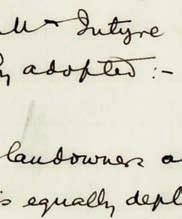 Mr Intyre
adopted :-
landowners a
is equally depl